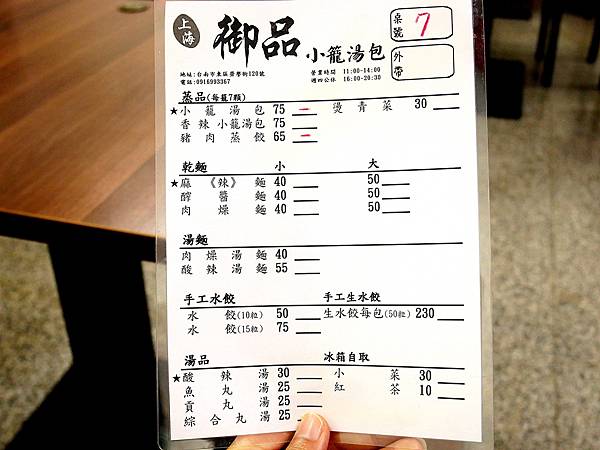 上海
御品 小籠湯包
桌號 7
外帶
地址:台南市東區榮學街120號
電話:0916993367
營業時間 11:00-14:00
週四公休 16:00-20:30
蒸品(每籠7顆)
★小籠湯包 75 一 燙青菜 30
香辣小籠湯包 75
豬肉蒸餃 65 一
乾麵 小 大
★麻《辣》麵 40 50
醡醬麵 40 50
肉燥麵 40 50
湯麵
肉燥湯麵 40
酸辣湯麵 55
手工水餃 手工生水餃
水餃(10粒) 50 生水餃每包(50粒) 230
水餃(15粒) 75
湯品 冰箱自取
★酸辣湯 30 小菜 30
魚丸湯 25 紅茶 10
貢丸湯 25
綜合丸湯 25